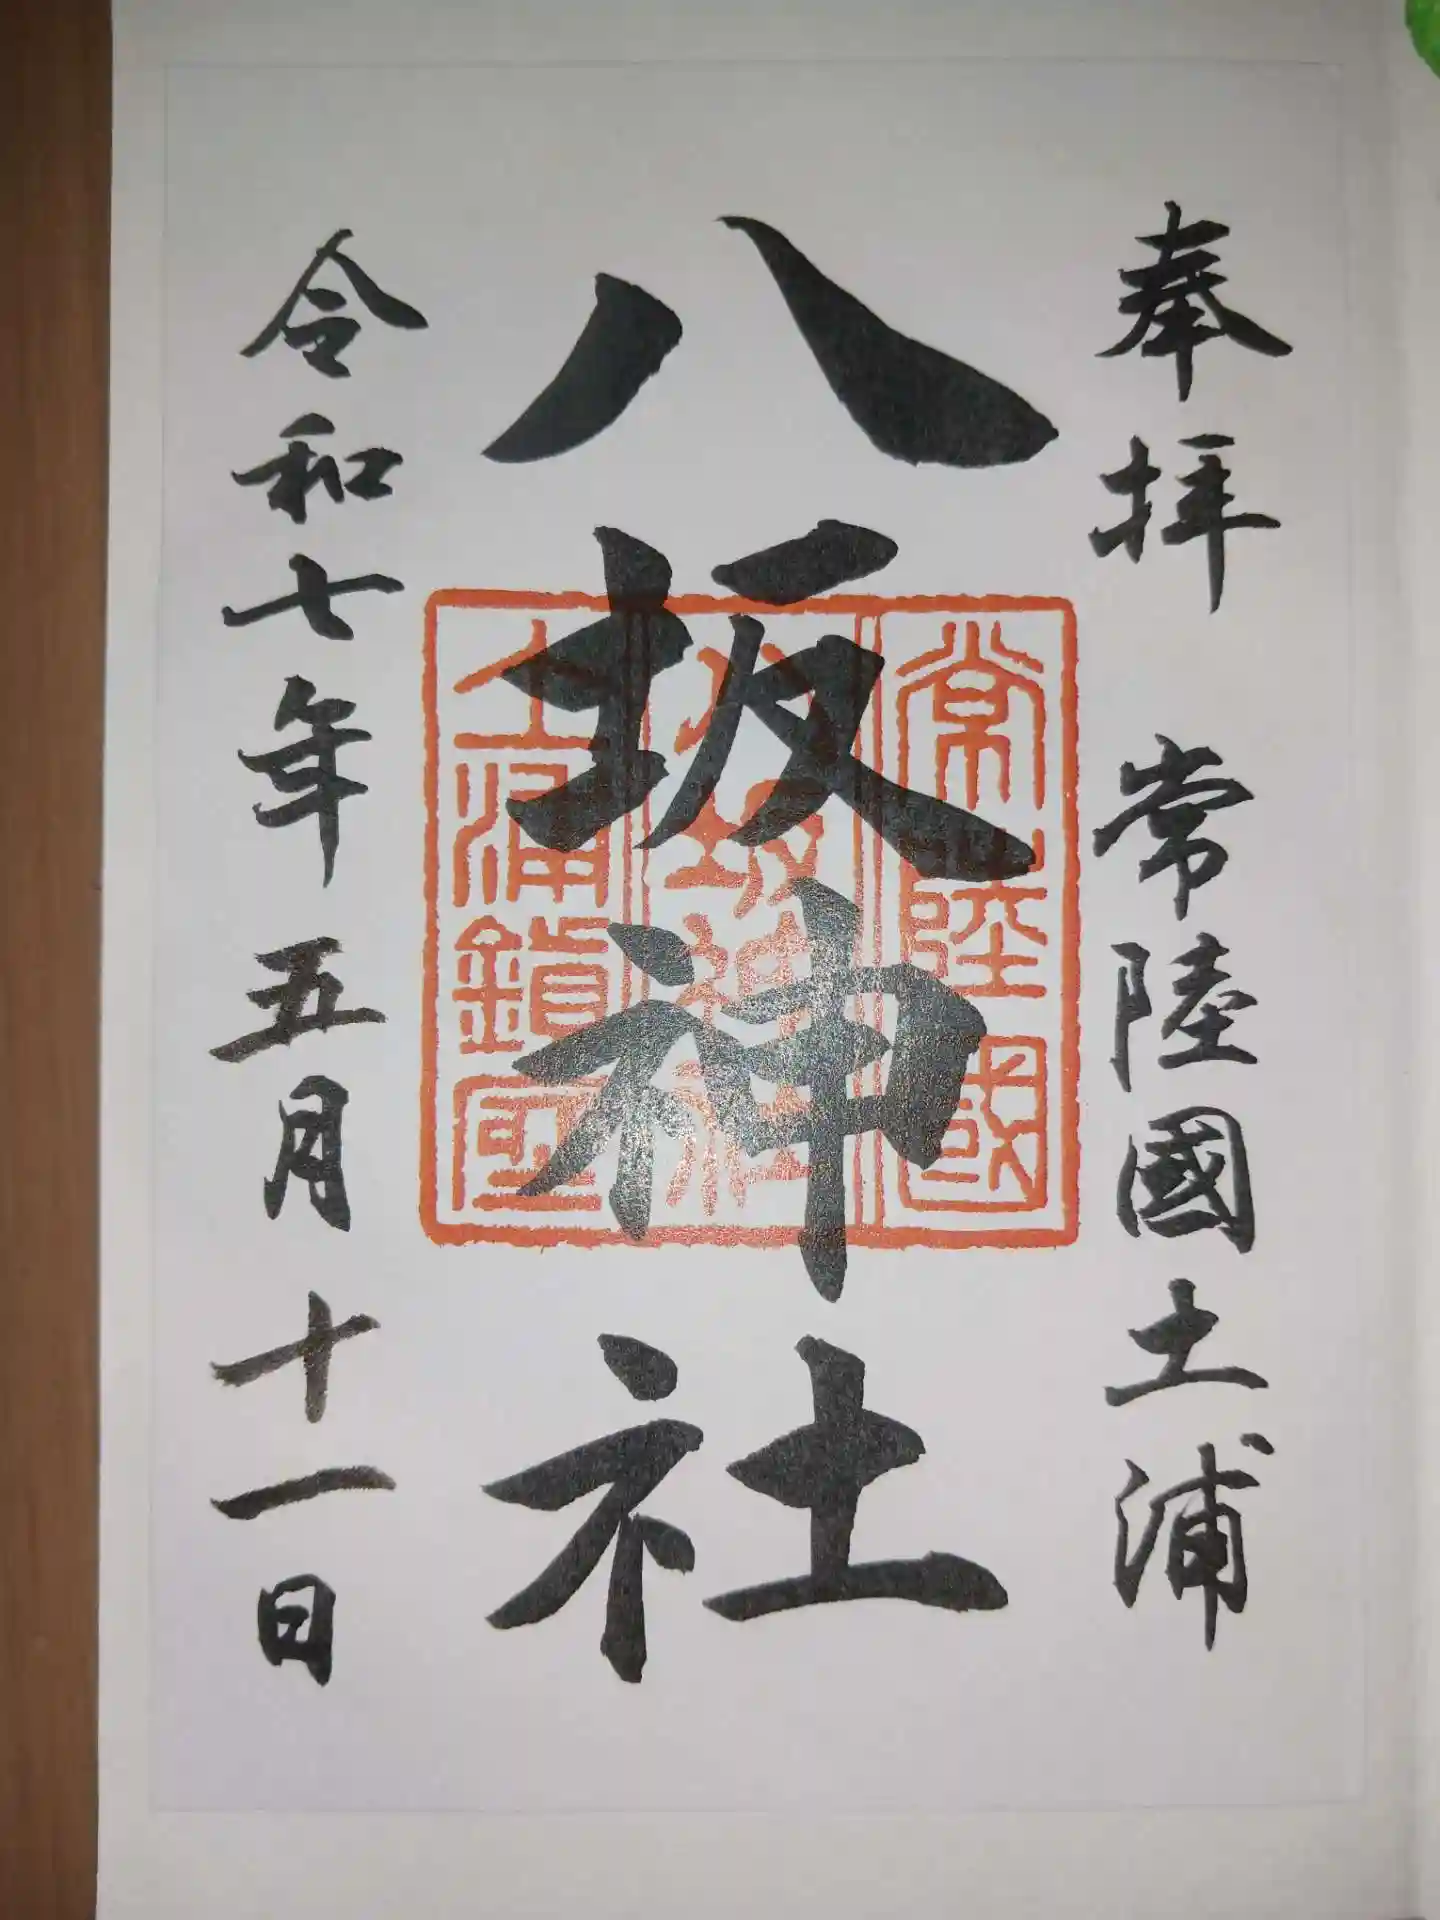 奉拝 常陸國土浦
八坂神社
令和七年五月十一日
常陸國
八坂神社
土浦鎮座